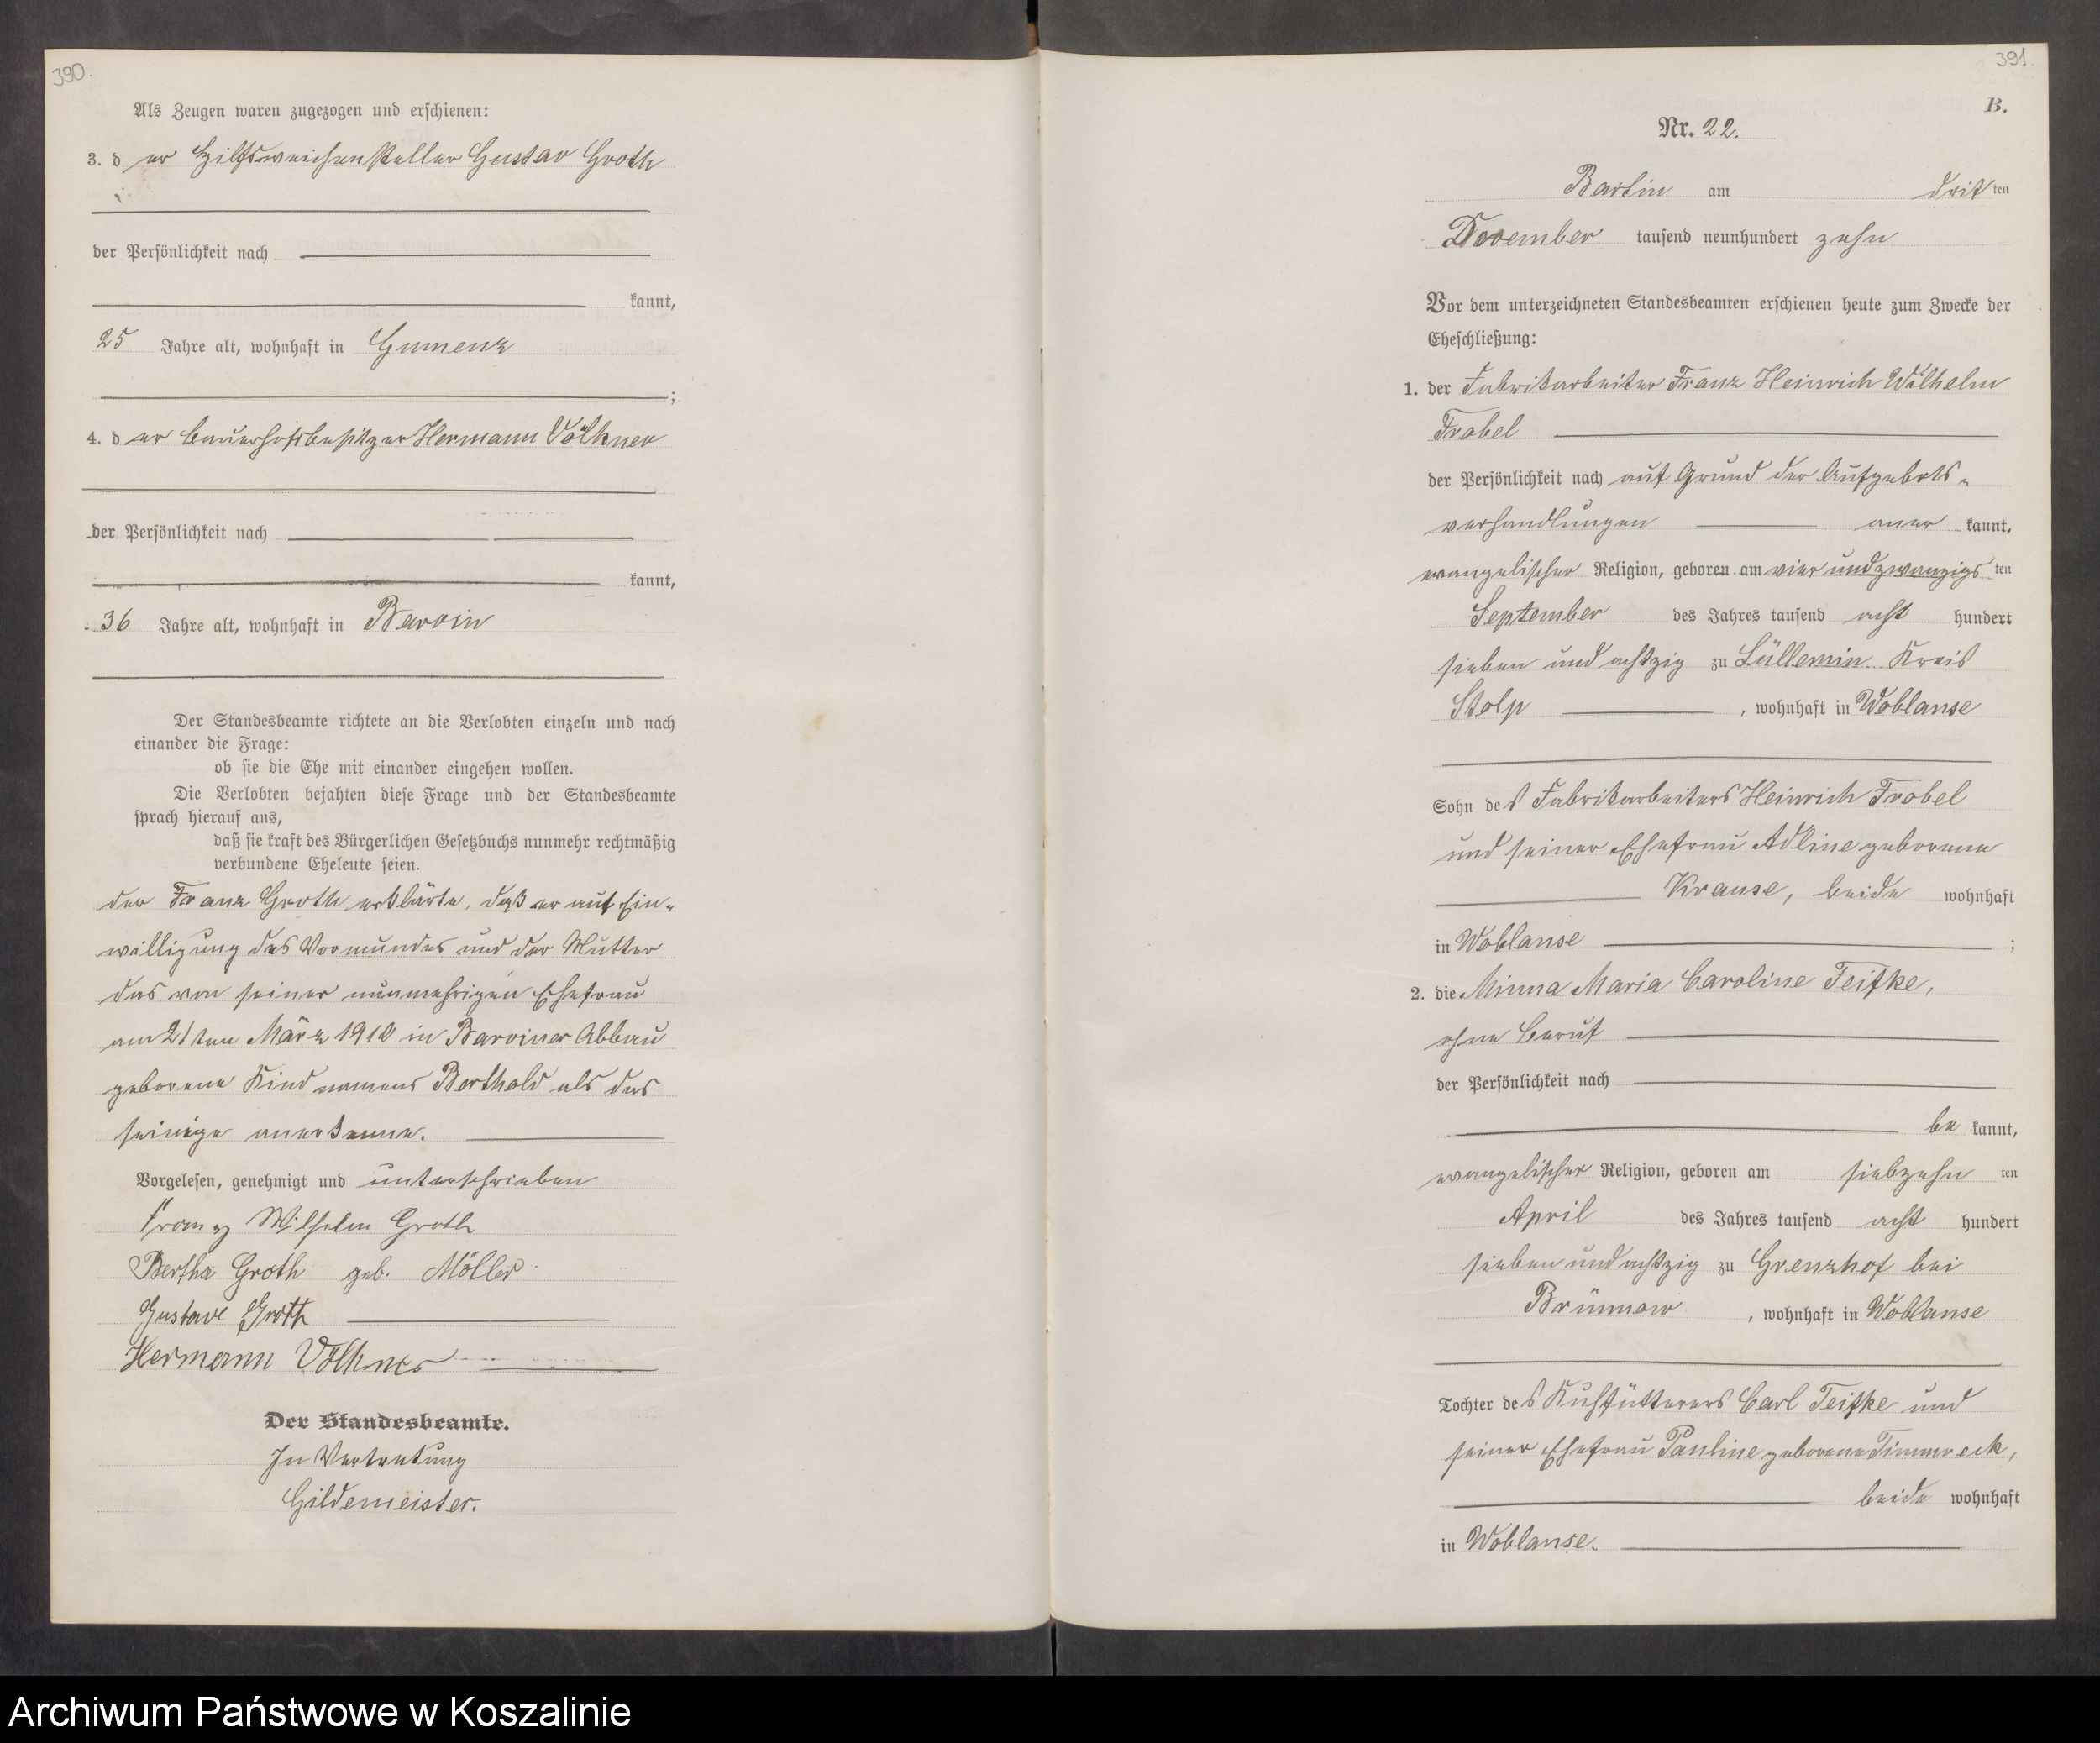 390.
Als Zeugen waren zugezogen und erschienen:
3. der Hilfsweichensteller Gustav Groth
der Persönlichkeit nach
kannt,
25 Jahre alt, wohnhaft in Gumenz
;
4. der Bauerhofsbesitzer Hermann Völkner
der Persönlichkeit nach
kannt,
36 Jahre alt, wohnhaft in Barvin
Der Standesbeamte richtete an die Verlobten einzeln und nach
einander die Frage:
ob sie die Ehe mit einander eingehen wollen.
Die Verlobten bejahten diese Frage und der Standesbeamte
sprach hierauf aus,
daß sie kraft des Bürgerlichen Gesetzbuchs nunmehr rechtmäßig
verbundene Eheleute seien.
der Franz Groth erklärte, daß er auf Ein-
willigung des Vormundes und der Mutter
das von seiner nunmehrigen Ehefrau
am 21ten März 1910 in Barviner Abbau
geborene Kind namens Berthold als das
seinige anerkenne.
Vorgelesen, genehmigt und unterschrieben
Franz Wilhelm Groth
Bertha Groth geb. Möller
Gustav Groth
Hermann Völkner
Der Standesbeamte.
In Vertretung
Gildemeister.
391.
B.
Nr. 22.
Bartin am dritten
December tausend neunhundert zehn
Vor dem unterzeichneten Standesbeamten erschienen heute zum Zwecke der
Eheschließung:
1. der Fabrikarbeiter Franz Heinrich Wilhelm
Trabel
der Persönlichkeit nach auf Grund der Aufgebots-
verhandlungen aner kannt,
evangelischer Religion, geboren am vier und zwanzigsten
September des Jahres tausend acht hundert
sieben und achtzig zu Lüllemin Kreis
Stolp, wohnhaft in Woblanse
Sohn des Fabrikarbeiters Heinrich Trabel
und seiner Ehefrau Adline geborene
Krause, beide wohnhaft
in Woblanse ;
2. die Minna Maria Caroline Teifke,
ohne Beruf
der Persönlichkeit nach
be kannt,
evangelischer Religion, geboren am siebzehnten
April des Jahres tausend acht hundert
sieben und achtzig zu Grenzhof bei
Brünnow, wohnhaft in Woblanse
Tochter des Kuhfütterers Carl Teifke und
seiner Ehefrau Pauline geborene Timmreck,
beide wohnhaft
in Woblanse.
Archiwum Państwowe w Koszalinie